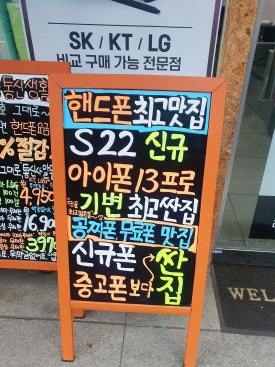 SK / KT / LG
비교 구매 가능 전문점
핸드폰 최고맛집
S22 신규
아이폰 13 프로
기변 최고싼집
공짜폰 무료폰 맛집
신규폰 싼
중고폰 보다 집
통신생활
그대로~
핸드폰요금
%절감
16,90
WEL